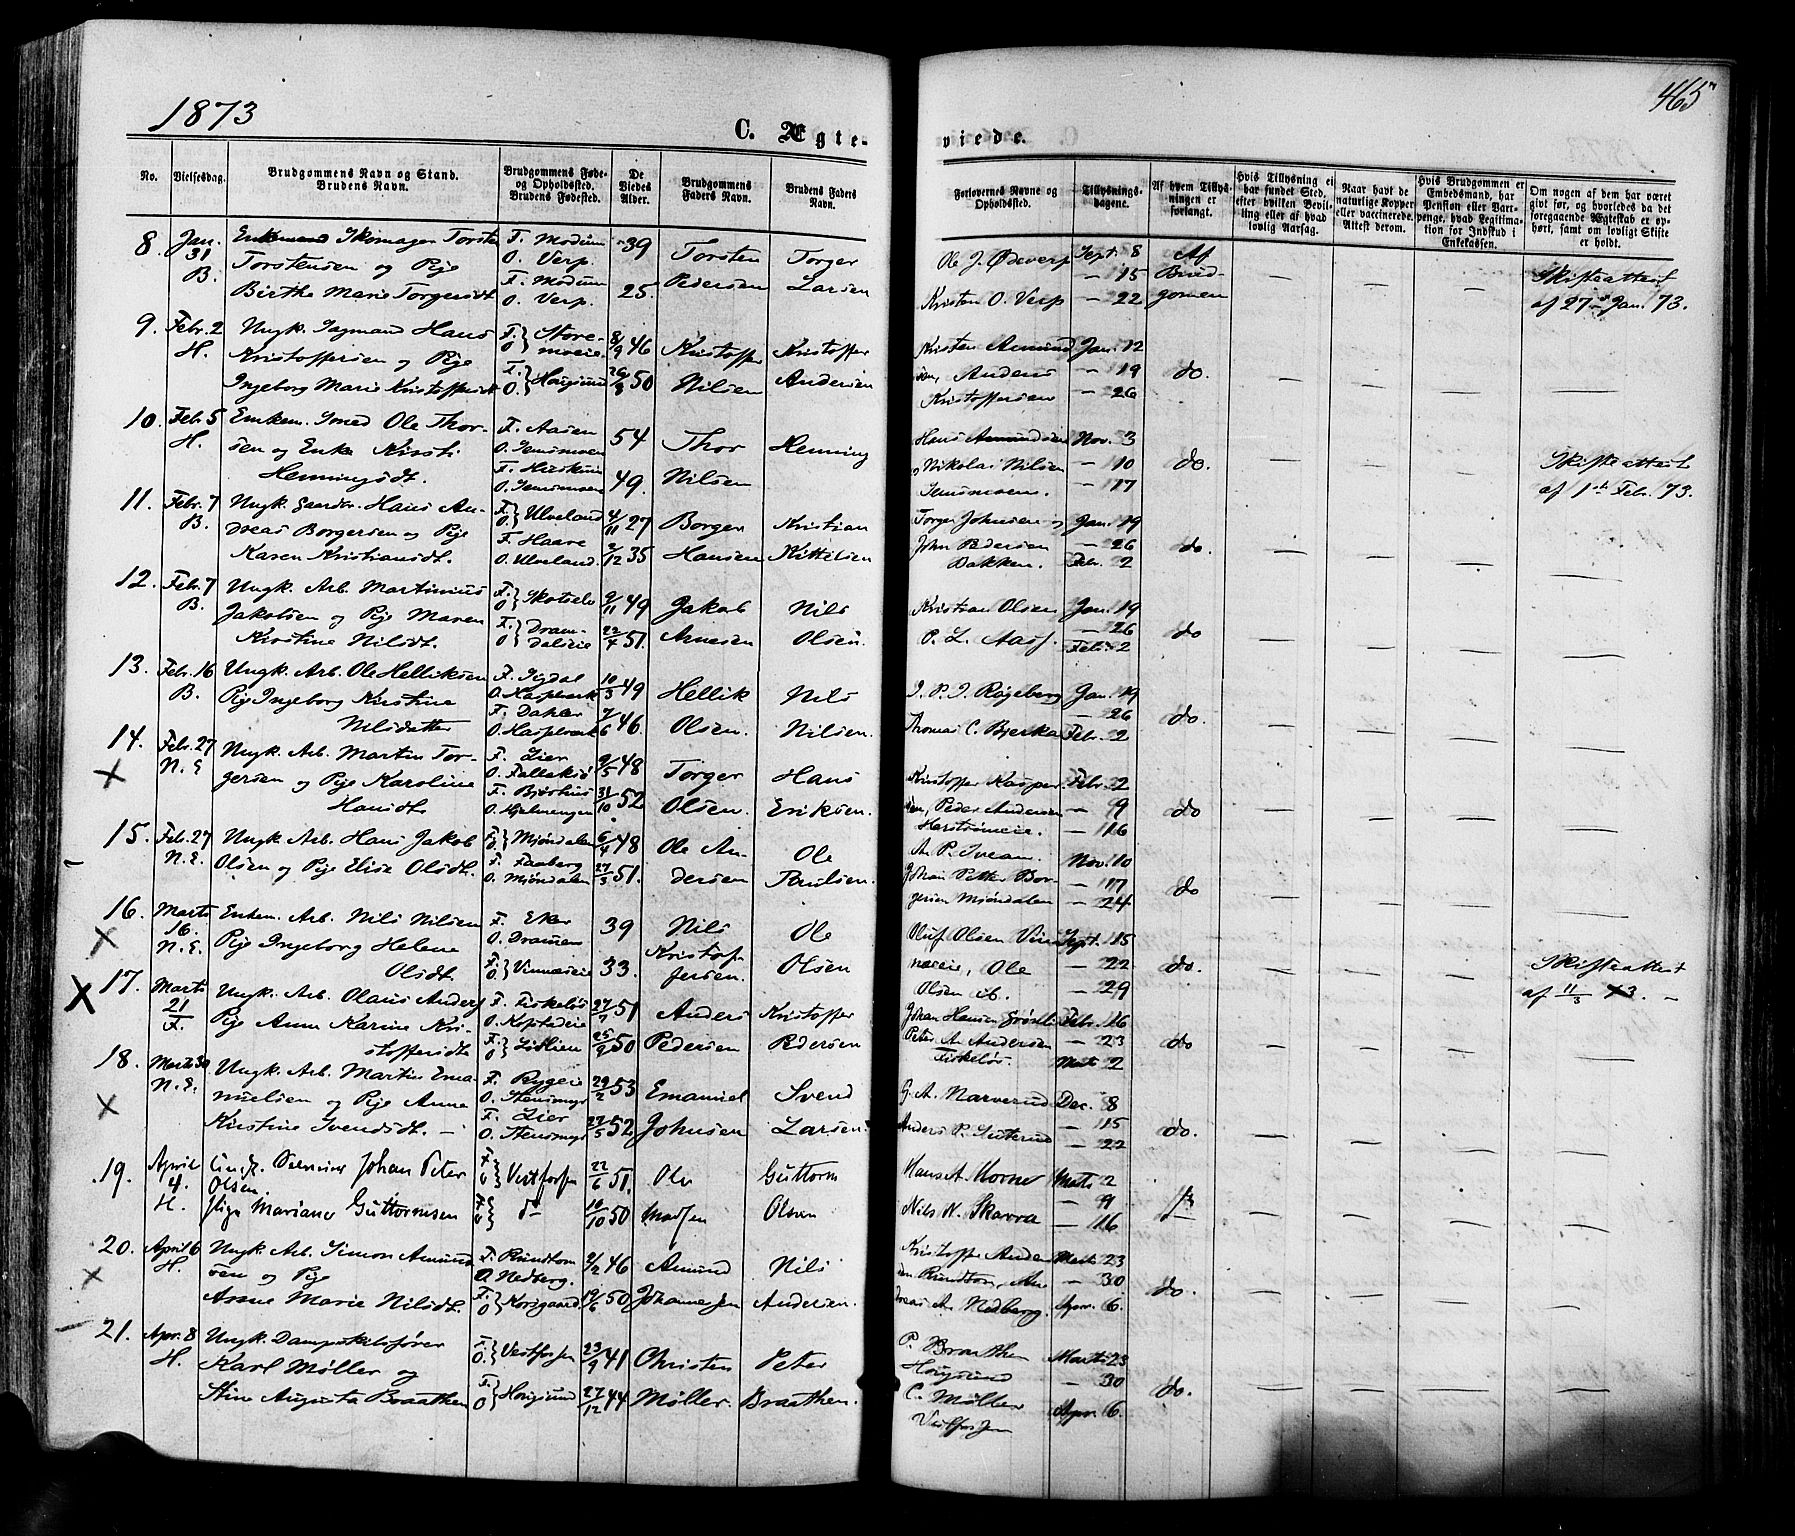 1873
465
C. Ægte-
viede.
No.
Vielsesdag.
Brudgommens Navn og Stand.
Brudens Navn.
Brudgommens Føde- og Opholdssted.
Brudens Fødested.
De Viedes Alder.
Brudgommens Faders Navn.
Brudens Faders Navn.
Forlovernes Navne og Opholdssted.
Tillysnings-dagene.
Af hvem Tillysningen er forlangt.
Hvis Tillysning ei har fundet Sted, efter hvilken Bevilling eller af hvad lovlig Aarsag.
Naar havt de naturlige Kopper eller vaccinerede. Attest derom.
Hvis Brudgommen er Embedsmand, har Pension eller Vartpenge, hvad Legitimation for Indskud i Enkekassen.
Om nogen af dem har været givt før, og hvorledes da det foregaaende Ægteskab er ophørt, samt om lovligt Skifte er holdt.
8. Jan. 31 B. Enkemand Skomager Torsten F. Modum O. Verp. 39 Torsten Torger Ole J. Ødeverp Sept. 8 Af
Torstensen og Pige Pedersen Larsen — 15 Brud- — — — Skifteattest
Birthe Marie Torgersdt F. Modum O. Verp. 25. Kristen O. Verp — 22 gomen af 27de Jan. 73.
9. Febr. 2 H. Ungk. Hans F. O. Store- 8/9 46 Kristoffer Kristoffer Kristen Amund Jan. 12
Kristoffersen og Pige Anders — 19 do. — — — —
Ingeborg Marie Kristoffersdt F. O. Hougsund 50 Nilsen Andersen Kristoffersen — 26
10. Feb. 5 H. Enkem. Smed Ole Thor- F. Aasen 54 Thor Henning Hans Amundsen Nov. 3
sen og Enke Kirsti O. Semsmoen Nikolai Nilsen — 10 do. — — — Skifteattest
Henningsdt. O. Semsmoen 49. Nilsen Semsmoen. — 17 af 1ste Febr. 73.
11. Febr. 7 B. Ungk. Gaardbr. Hans An- F. O. Ulveland 4/11 27 Borger Kristian Torger Johnsen og Jan. 19
dreas Borgersen og Pige F. Haare John Pedersen — 26 do. — — — —
Karen Kristiansdt. O. Ulveland 2/12 35 Hansen Kittilsen Bakken. Febr. 2
12. Febr. 7 B. Ungk. Arb. Martinius F. O. Skotselv 9/11 49 Jakob Nils Kristian Olsen Jan. 19
Jakobsen og Pige Maren P. L. Aass. — 26 do — — — —
Kirstine Nilsdt. F. O. Dram- 22/4 51. Arnesen Olsen. Feb. 2
13. Febr. 16 B. Ungk. Arb. Ole Helliksen F. Sigdal 10/3 49 Hellik Nils J. P. J. Rogeberg Jan. 19
Pige Ingeborg Kirstine — 26 do. — — — —
Nilsdatter F. Dahler 7/6 46. Olsen. Nilsen. Thomas C. Bjerka Febr. 2
14. Febr. 27 N. E. Ungk. Arb. Martin Tor- F. Lier 9/5 48 Torger Hans Kristoffer Kasper- Febr. 2
gersen og Pige Karoline Peder Andersen — 9 do — — — —
Hansdt. 31/10 52 Olsen. Eriksen. — 16
15. Febr. 27 N. E. Ungk. Arb. Hans Jakob F. O. Mjøndalen 6/4 48 Ole An- Ole A. P. Nov. 10
Olsen og Pige Elise Olsdt. F. Faaberg O. Mjøndalen 27/3 51. dersen Paulsen. Johan Petter Bor- — 17 do — — — —
gersen Mjøndalen — 24
16. Marts 16. N. E. Enkem. Arb. Nils Nilsen F. Eker O. Drammen 39 Nils Ole Oluf Olsen Vin- Sept. 15
Pige Ingeborg Helene Kristof- næseie, Ole — 22 do. — — — Skifteattest
Olsdt F. O. Vinnæseie 33. fersen. Olsen ib. — 29 af 11/3 73. —
17. Marts 21 F. Ungk. Arb. Olaus Anders F. Fiskeløs 27/7 51 Anders Kristoffer Johan Hansen Febr. 16
Pige Anne Karine Kri- Peter A. Andersen — 23 do — — — —
stoffersdt F. O. 25/9 50 Pedersen Pedersen Fiskeløs. Marts 2
18. Marts 30 N. E. Ungk. Arb. Martin Ema- F. Ryggeie 29/2 53 Emanuel Svend G. A. Narverud Dec. 8
nuelsen og Pige Anne — 15 do. — — — —
Kirstine Svendsdt. — F. Lier 27/5 52 Johnsen Larsen. Anders P. — 22
19. April 4. H. Johan Peter F. O. Vestfossen 22/6 51. Ole Guttorm Hans A. Horne Marts 2
Olsen — 9 — — — —
Pige Mariane Guttormsen F. O. do 10/10 50 Madsen Olsen Nils N. Skarra — 16
20. April 6 H. Ungk. Arb. Simon Amund- F. Rundtom 9/2 46 Amund Nils Kristoffer Ander- Marts 23
sen og Pige O. Nedberg. sen Rundtom, An- — 30 do. — — — —
Anne Marie Nilsdt. F. O. Korsgaard 19/6 50 Johannesen Andersen. dreas A. Nedberg. Apr. 6.
21. Apr. 8 H. Ungk. Dampskibsfører F. O. Vestfossen 23/9 41 Christen Peter P. Braathen Marts 23
Karl Møller og Hougsund — 30 do. — — — —
Stine Augusta Braathen F. O. Hougsund 27/12 44 Møller. Braathen. C. Møller Apr. 6.
Vestfossen